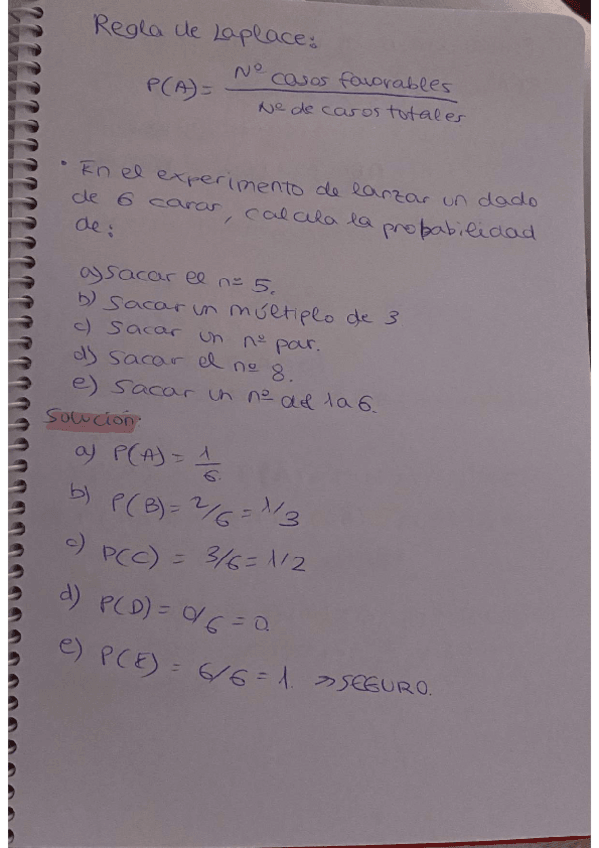 Regla de Laplace:
P(A) = Nº casos favorables / Nº de casos totales
• En el experimento de lanzar un dado
de 6 caras, calcula la probabilidad
de:
a) Sacar el nº 5.
b) Sacar un múltiplo de 3
c) Sacar un nº par.
d) Sacar el nº 8.
e) Sacar un nº del 1 a 6.
Solución:
a) P(A) = 1/6.
b) P(B) = 2/6 = 1/3
c) P(C) = 3/6 = 1/2
d) P(D) = 0/6 = 0.
e) P(E) = 6/6 = 1. => SEGURO.